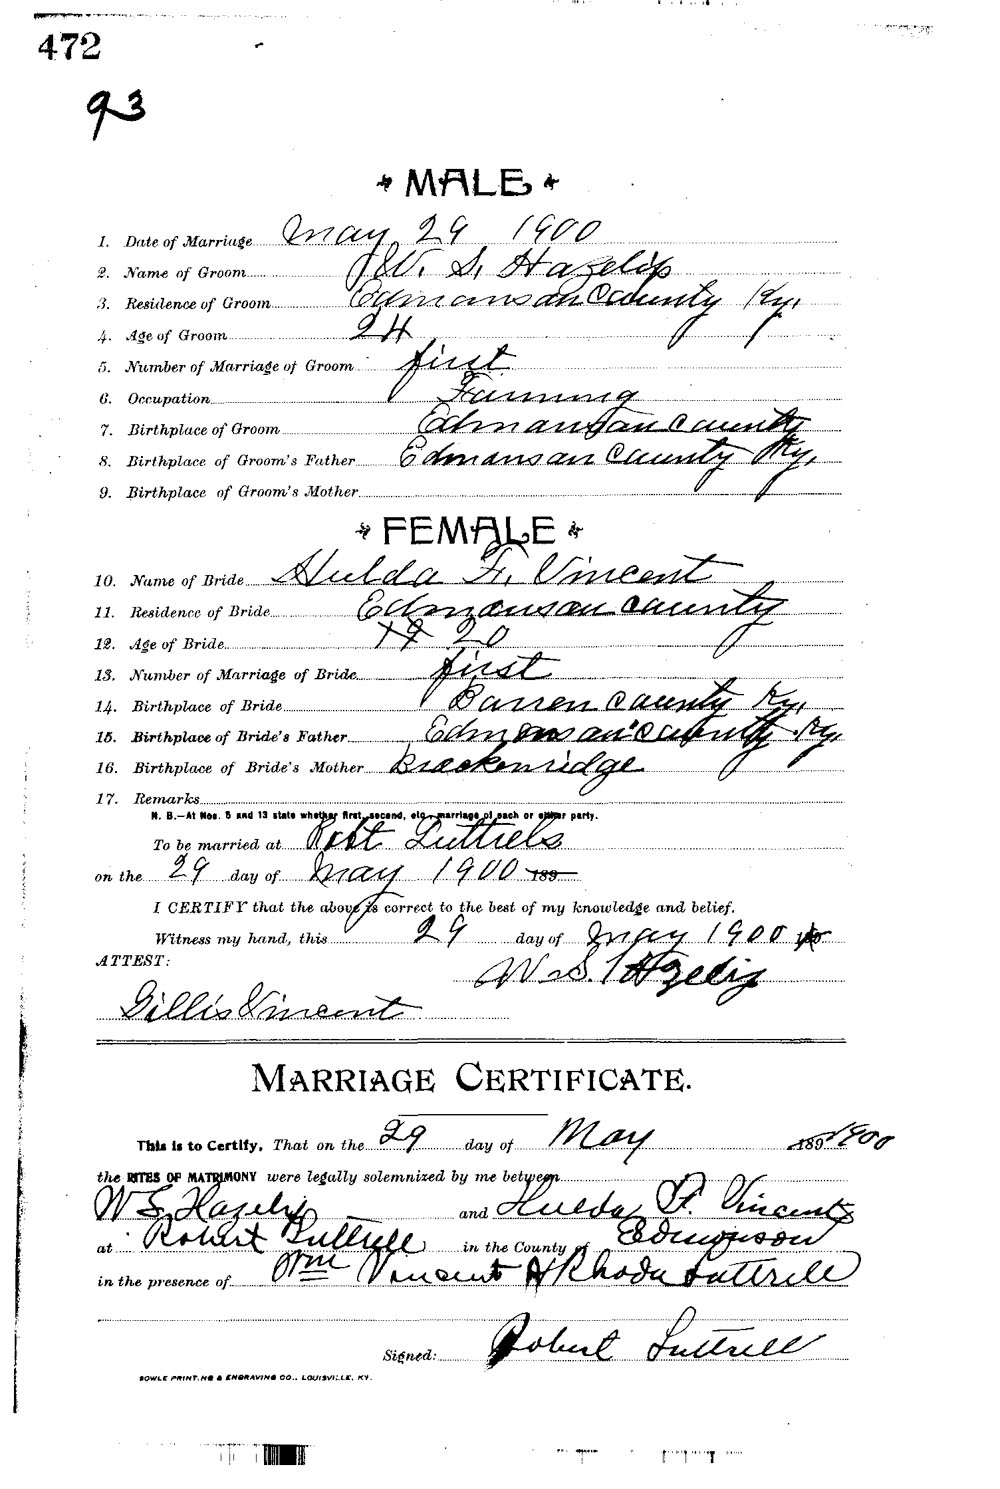 472
93
MALE
1. Date of Marriage May 29 1900
2. Name of Groom W. S. Hazelip
3. Residence of Groom Edmonson County Ky,
4. Age of Groom 24
5. Number of Marriage of Groom first
6. Occupation Farming
7. Birthplace of Groom Edmonson County
8. Birthplace of Groom's Father Edmonson County Ky,
9. Birthplace of Groom's Mother
FEMALE
10. Name of Bride Hulda F. Vincent
11. Residence of Bride Edmonson County
12. Age of Bride 19 20
13. Number of Marriage of Bride first
14. Birthplace of Bride Barren County Ky,
15. Birthplace of Bride's Father Edmonson County Ky,
16. Birthplace of Bride's Mother Breckenridge
17. Remarks
N. B.—At Nos. 5 and 13 state whether first, second, etc., marriage of each or either party.
To be married at Robt Luttrels
on the 29 day of May 1900 189
I CERTIFY that the above is correct to the best of my knowledge and belief.
Witness my hand, this 29 day of May 1900
ATTEST: W. S. Hazelip
Gillis Vincent
MARRIAGE CERTIFICATE.
This is to Certify, That on the 29 day of May 189 1900
the RITES OF MATRIMONY were legally solemnized by me between
W S Hazelip and Hulda F. Vincent
at Robert Luttrell in the County of Edmonson
in the presence of Wm Vincent & Rhoda Luttrell
Signed: Robert Luttrell
BOWLE PRINTING & ENGRAVING CO., LOUISVILLE, KY.